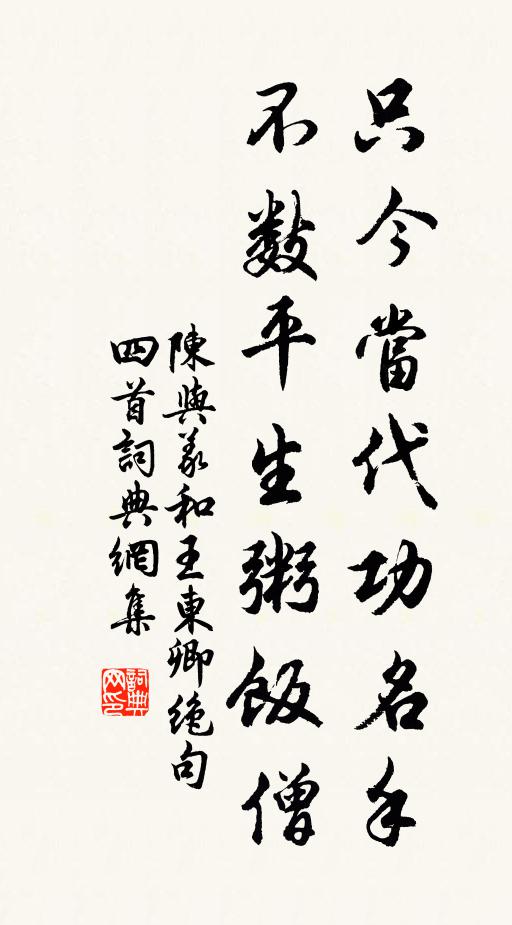 只今當代功名手
不數平生粥飯僧
陳與義和王東卿絕句
四首詞典網集
詞典網印